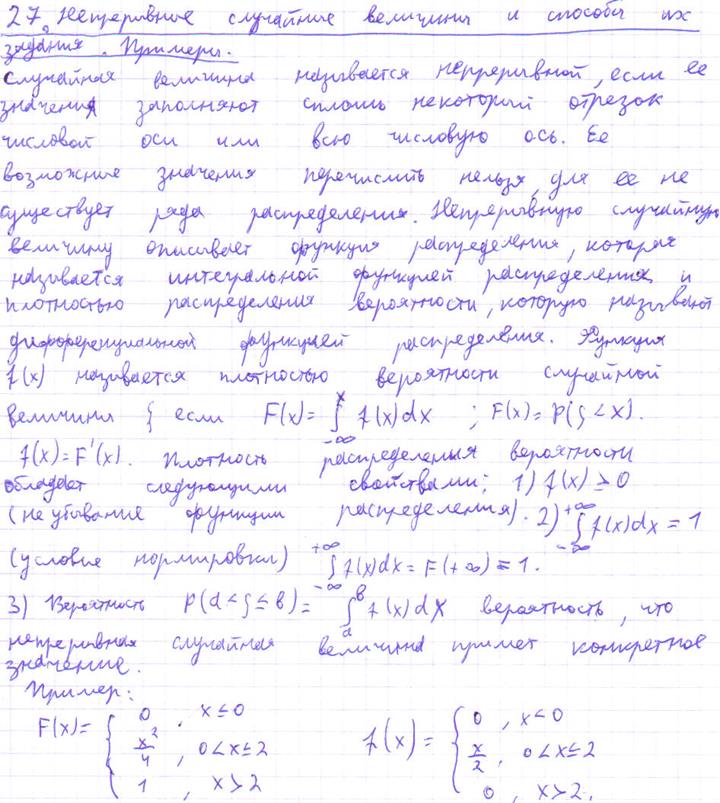 27. Непрерывные случайные величины и способы их
задания. Примеры.
Случайная величина называется непрерывной, если ее
значения заполняют сплошь некоторый отрезок
числовой оси или всю числовую ось. Ее
возможные значения перечислить нельзя, для ее не
существует ряда распределения. Непрерывную случайную
величину описывает функция распределения, которая
называется интегральной функцией распределения, и
плотностью распределения вероятности, которую называют
дифференциальной функцией распределения. Функция
f(x) называется плотностью вероятности случайной
величины ξ если F(x) = ∫_{-∞}^{x} f(x)dx ; F(x) = P(ξ < x).
f(x) = F'(x). Плотность распределения вероятности
обладает следующими свойствами; 1) f(x) ≥ 0
(не убывание функции распределения). 2) ∫_{-∞}^{+∞} f(x)dx = 1
(условие нормировки) ∫_{-∞}^{+∞} f(x)dx = F(+∞) = 1.
3) Вероятность P(a < ξ ≤ b) = ∫_{a}^{b} f(x)dx вероятность, что
непрерывная случайная величина примет конкретное
значение.
Пример:
F(x) = { 0 , x ≤ 0 f(x) = { 0 , x < 0
x²/4 , 0 < x ≤ 2 x/2 , 0 < x ≤ 2
1 , x > 2 0 , x > 2.